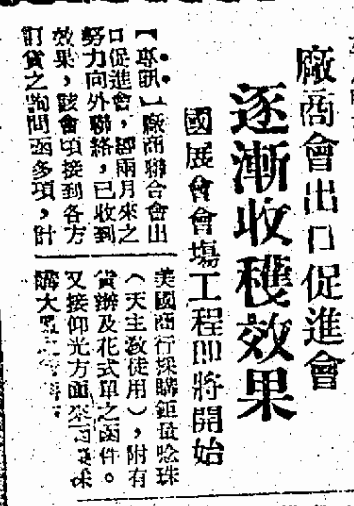 廠商會出口促進會
逐漸收穫效果
國展會會塲工程即將開始
【專訊】廠商聯合會出
口促進會，經兩月來之
努力向外聯絡，已收到
效果，該會頃接到各方
訂貨之詢問函多項，計
美國商行採購鉅量唸珠
（天主教徒用），附有
貨辦及花式單之函件。
又接仰光方面來函採
購大